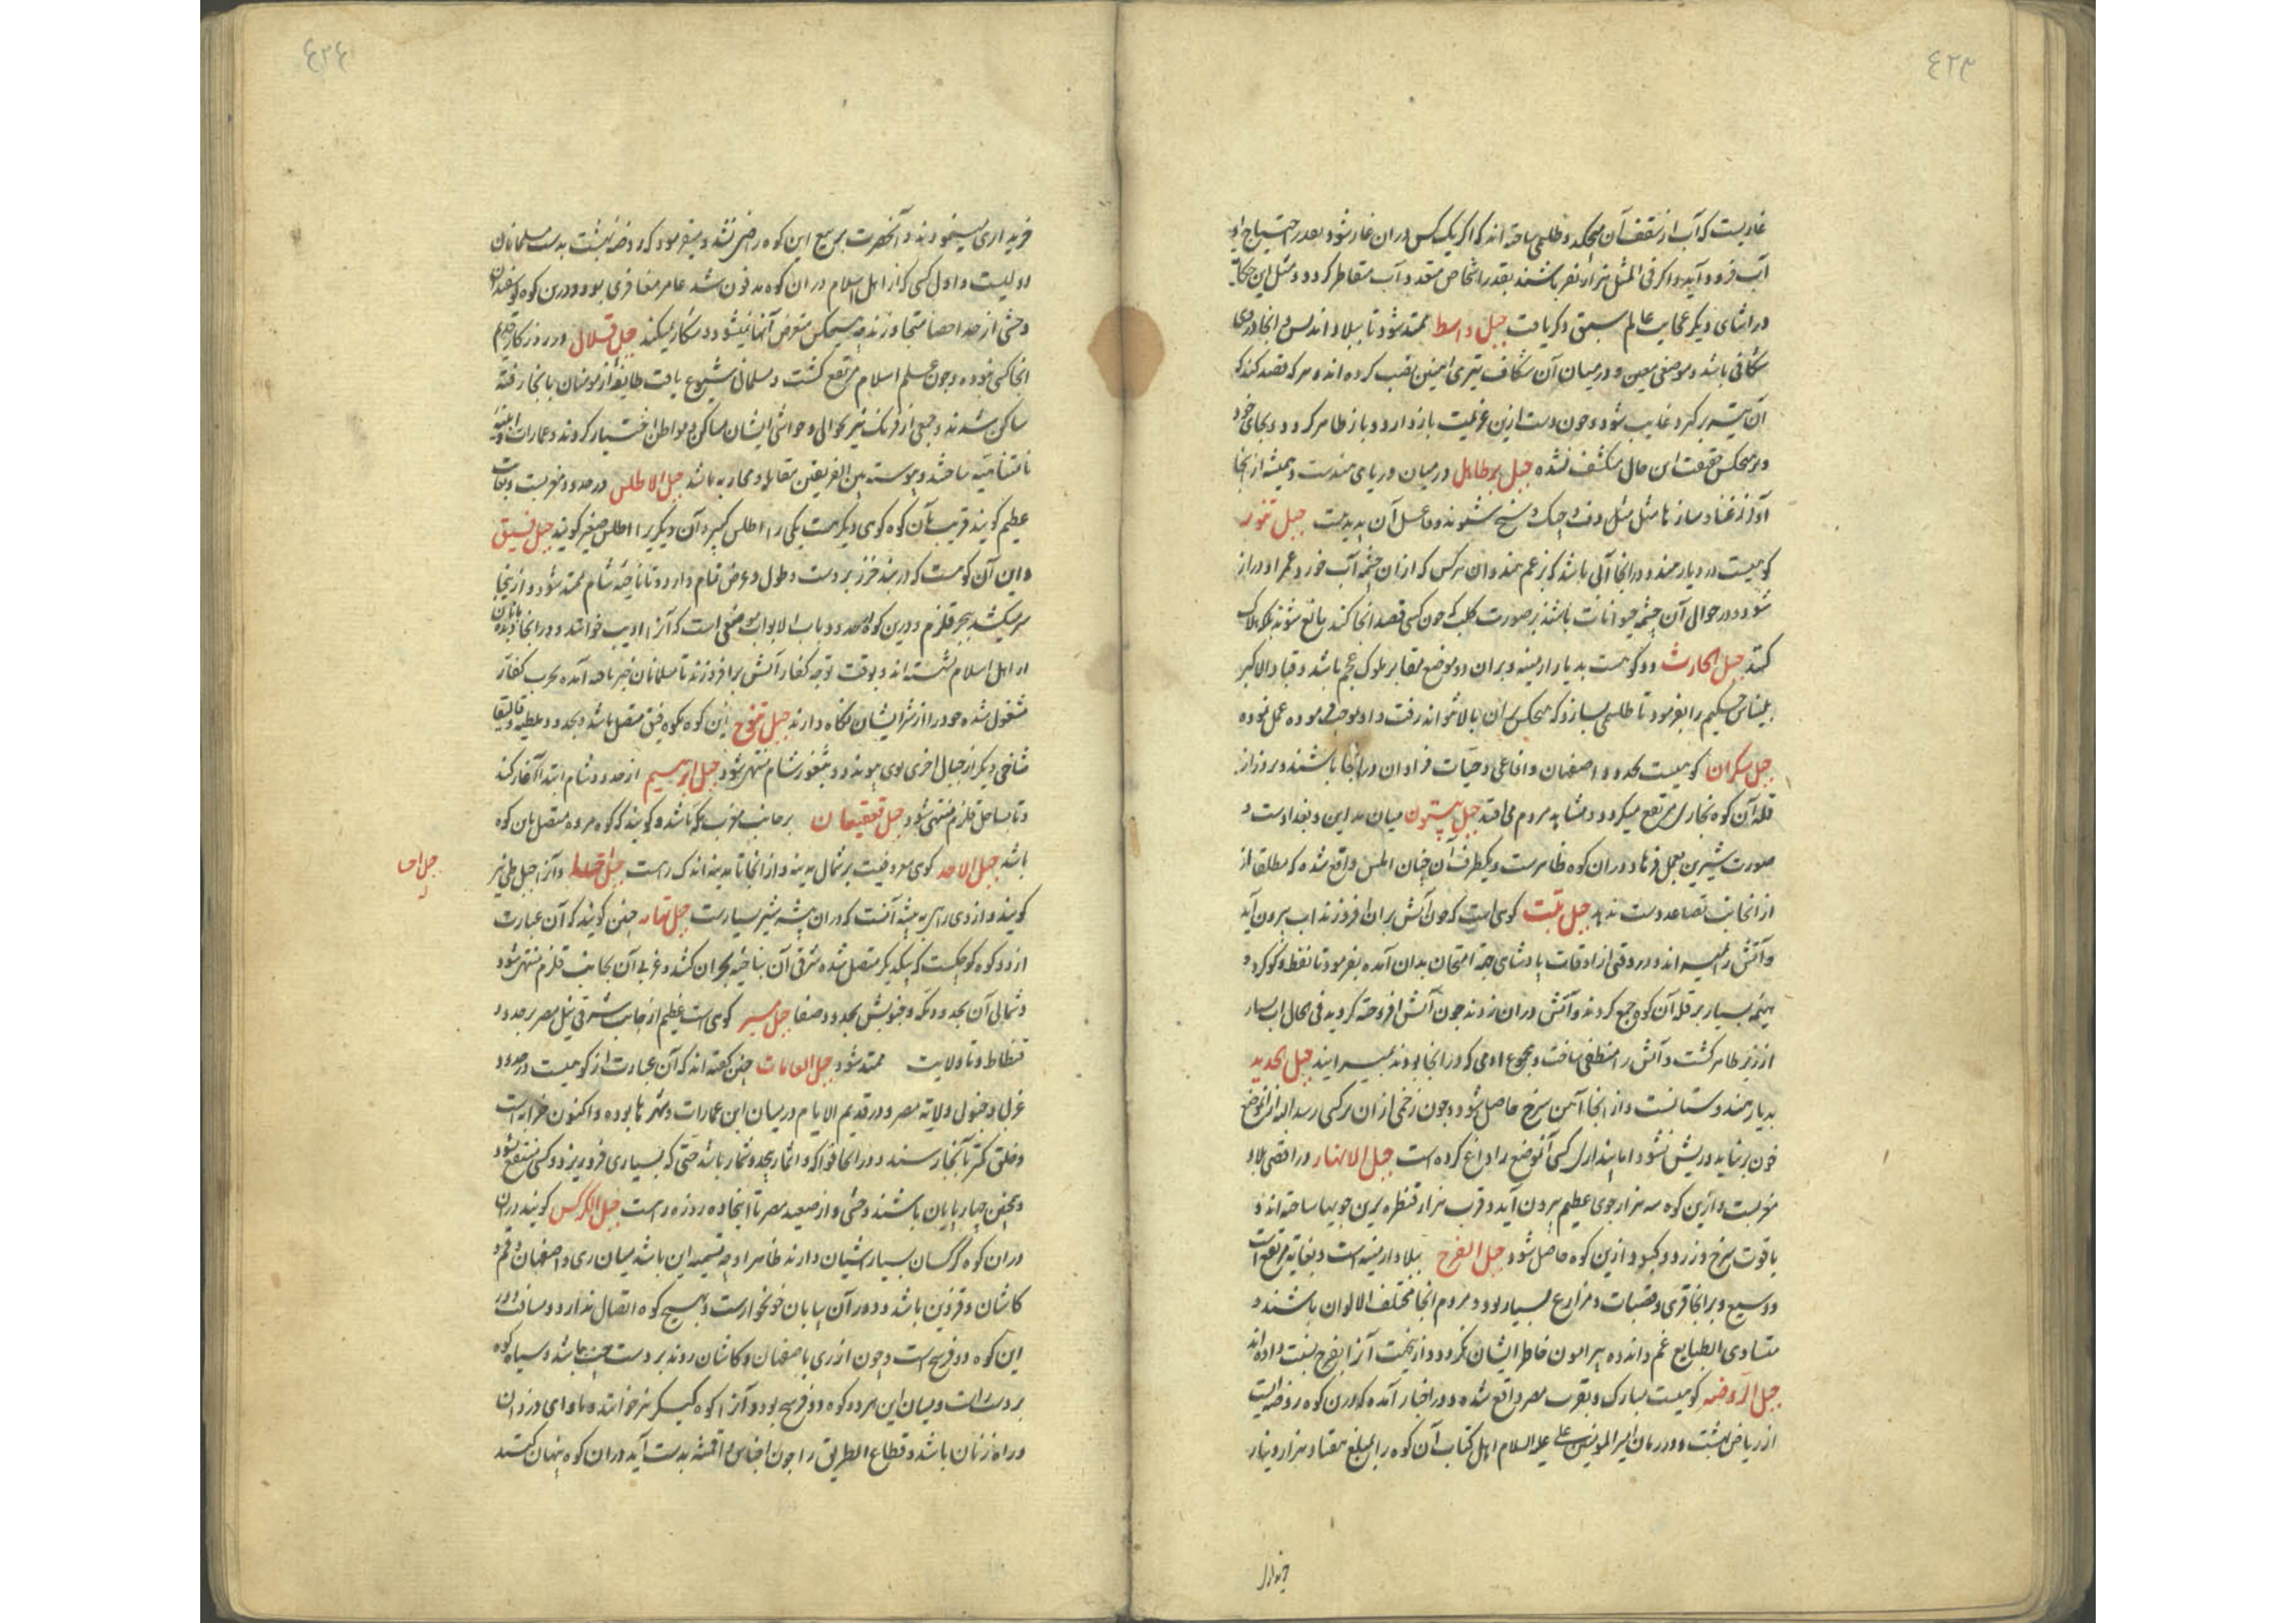 ٤٢٣
غاریست که آب از سقف آن میچکد و طلسمی ساخته اند که اگر یک کس در ان غار شود بقدر احتیاج او
آب فرود آید و اگر فی المثل هزار نفر باشند بقدر اشخاص متعدد آب متقاطر گردد و مثل این حکایت
در اثنای دیگر عجایب عالم سبق ذکر یافت جبل واسط ممتد شود تا ببلاد اندلس و انجا در وی
شکافی باشد و موضعی معین و در میان آن شکاف تبری اهنین نصب کرده اند و هر که قصد کند که
آن تیشه بر گیرد غایب شود و چون دست ازین عزیمت باز دارد و باز ظاهر گردد و بجای خود
و بر هیچکس حقیقت این حال منکشف نشده جبل برطایل در میان دریای هندست و همیشه از انجا
آواز غنا و سازها مثل دف و چنگ و شنوند و فاعل آن پدید نیست جبل
کوهیست در دیار هند و در انجا آبی باشد که بزعم هندوان هر کس که از ان چشمه آب خورد عمر او دراز
شود و در حوالی آن چشمه حیوانات باشند بر صورت کلب که چون کسی قصد انجا کند مانع شوند بلکه هلاک
کنند جبل الحارث دو کوهست بدیار ارمینه و بران دو موضع مقابر ملوک عجم باشد و قباد الاکبر
بلیناس حکیم را بفرمود تا طلسمی بسازد که هیچکس بران بالا نتواند رفت و او بموجب فرموده عمل نموده
جبل سکران کوهیست بحدود اصفهان و افاعی و حیات فراوان در انجا باشند و هر روز از
قله آن کوه بخاری مرتفع میگردد و مشاهد مردم می افتد جبل بیستون میان مداین و بغدادست و
صورت شیرین بعمل فرهاد دران کوه ظاهرست و یکطرف آن چنان املس واقع شده که مطلقا از
از انجانب تصاعد دست ندهد جبل تبت کوهی است که چون آتش بران افروزند اب بیرون آید
و آتش را بمیراند و در وقتی از اوقات پادشاهی بجهة امتحان بدان آمده بفرمود تا نفط و کوکرد و
هیمه بسیار بر قله آن کوه جمع کردند و آتش دران زدند چون آتش افروخته گردید فی الحال اب بسیار
از زیر ظاهر گشت و آتش را منطفی ساخت و مجموع ادمی که در انجا بودند بمیرانید جبل الحدید
بدیار هندوستانست و از انجا آهن سرخ حاصل شود و چون زخمی از ان بر کسی رسد البته از ان موضع
خون بر نیاید و ریش نشود اما پنداری کسی آنموضع را داغ کرده است جبل الانهار در اقصی بلاد
مغربست و ازین کوه سه هزار جوی عظیم بیرون آید و قرب هزار قنطره برین جویها ساخته اند و
یاقوت سرخ و زرد و کبود ازین کوه حاصل شود جبل الفرح ببلاد ارمینه است و بغایة مرتفع است
و وسیع و بر انجا قری و قصبات و مزارع بسیار بود و مردم انجا مختلف الالوان باشند و
متساوی الطبایع غم و اندوه پیرامون خاطر ایشان نگردد و ازینجهت آنرا بفرح نسبت داده اند
جبل الروضه کوهیست مبارک و بقرب مصر واقع شده و در اخبار آمده که درین کوه روضه ایست
از ریاض بهشت و در زمان امیر المومنین علی علیه السلام اهل کتاب آن کوه را بمبلغ هفتاد هزار دینار
٤٢٤
خریداری مینمودند و آنحضرت ببیع این کوه راضی نشد و میفرمود که روضه بهشت بدست مسلمانان
اولیست و اول کسی که از اهل اسلام دران کوه مدفون شد عامر مغافری بود و درین کوه گوسفندان
وحشی از حد احصا متجاوزند و هیچکس متعرض آنها نمیشود و شکار نمیکند جبل قلال در روزگار قدیم
انجا کسی نبوده و چون علم اسلام مرتفع گشت و مسلمانی شیوع یافت طایفه از مومنان بانجا رفته
ساکن شدند و جمعی از فرنگ نیز بحوالی و حواشی ایشان مساکن و مواطن اختیار کردند و عمارات و ابنیه
نامتناهیه ساختند و پیوسته بین الفریقین مقاتله و محاربه باشد جبل الاطلس در حدود مغربست و
عظیم گویند قریب بآن کوه کوهی دیگرست یکی را اطلس کبیر و آن دیگری را اطلس صغیر گویند جبل فیق
و این آن کوهست که دربند خزر بروست و طول و عرض تمام دارد و تا ناحیه شام ممتد شود و از ینجا
سر میکشد ببحر قلزم و درین کوه بحدود باب الابواب موضعی است که آنرا ادیب خوانند و در انجا دیدبانان
از اهل اسلام نشسته اند و بوقت توجه کفار آتش بر افروزند تا مسلمانان خبر یافته آمده بحرب کفار
مشغول شده خود را از شر ایشان نگاه دارند جبل این کوه بکوه فیق متصل باشد بحدود ملطیه و
شاخی دیگر از جبال اخری بوی پیوندد و بثغور شام منتهی شود جبل ابرهیم از حدود شام ابتدا آغاز کند
و تا بساحل قلزم منتهی شود جبل قعیقعان بر جانب مغرب مکه باشد و گویند که کوه مروه متصل بان کوه
باشد جبل الاحد کوهی معروفیست بر شمال مدینه و از انجا تا مدینه اندک راهست جبل و آنرا جبل طی نیز
گویند و از وی راهی به بیشه آنست که دران بیشه شیر بسیارست جبل تهامه چنین گویند که آن عبارت
از دو کوه کوچکست که بیکدیگر متصل شده شرقی آن بناحیه بحران کشد و غربی آن بجانب قلزم منتهی شود
و شمالی آن بحدود مکه و جنوبش بحدود صنعا جبل کوهی است عظیم از جانب شرقی نیل مصر بر حدود
فسطاط و تا ولایت ممتد شود جبل العامات چنین گفته اند که آن عبارت از کوهیست در حدود
غربی و جنوبی ولایة مصر و در قدیم الایام در میان این عمارات و شهرها بوده و اکنون خرابه است
و خلق کمتر بآنجا رسند و در انجا فواکه و اثمار بیحد و شمار باشد حتی که بسیاری فرو ریزد و کسی منتفع نشود
و بعضی چهارپایان باشند وحشی و از صعید مصر تا انجا ده روزه راهست جبل الکرکس گویند دران
دران کوه کرکسان بسیار آشیان دارند ظاهرا وجه تسمیه این باشد میان ری و اصفهان و قم و
کاشان و قزوین باشد و دور آن بیابان خونخوارست و بهیچ کوه اتصال ندارد و مسافت دور
این کوه دو فرسخ است و چون از ری باصفهان و کاشان روند بر دست چپ باشد و سیاه کوه
بر دست راست و میان این هر دو کوه دو فرسخ بود و آنرا کوه نیز خوانند و ماوای دزدان
و راه زنان باشد و قطاع الطریق را چون اجناس و اقمشه بدست آید دران کوه پنهان کنند